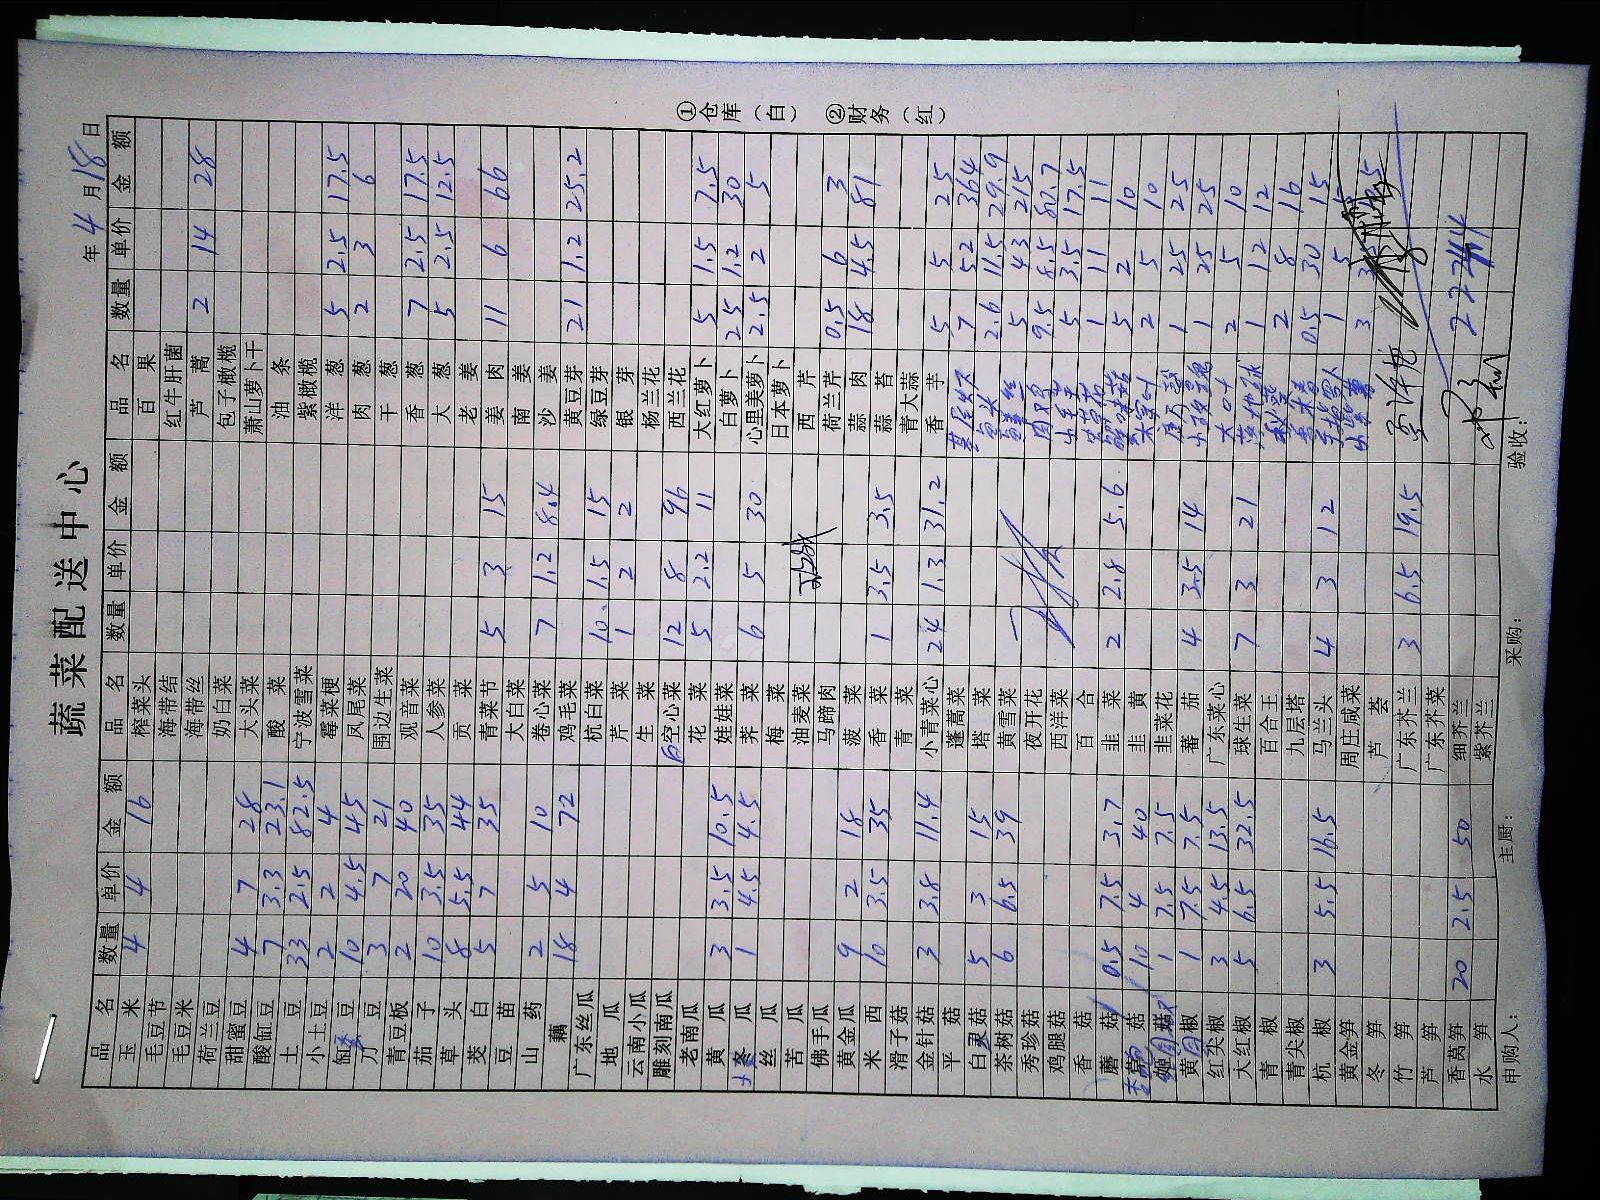 蔬菜配送中心
年 4 月 18 日
品名 数量 单价 金额 品名 数量 单价 金额 品名 数量 单价 金额
玉米 4 4 16 榨菜头 百果
毛豆节 海带结 红牛肝菌
毛豆米 海带丝 芦蒿 2 14 28
荷兰豆 奶白菜 包子橄榄
甜蜜豆 4 7 28 大头菜 萧山萝卜干
酸缸豆 7 3.3 23.1 酸菜 油条
土豆 33 2.5 82.5 宁波雪菜 紫橄榄
小土豆 2 2 4 霉菜梗 洋葱 5 2.5 17.5
缸豆 10 4.5 45 凤尾菜 肉葱 2 3 6
刀豆 3 7 21 围边生菜 干葱
青豆板 2 20 40 观音菜 香葱 7 2.5 17.5
茄子 10 3.5 35 人参菜 大葱 5 2.5 12.5
草头 8 5.5 44 贡菜 老姜
茭白 5 7 35 青菜节 5 3 15 姜肉 11 6 66
豆苗 大白菜 南姜
山药 2 5 10 卷心菜 7 1.2 8.4 沙姜
藕 18 4 72 鸡毛菜 黄豆芽 21 1.2 25.2
广东丝瓜 杭白菜 10 1.5 15 绿豆芽
地瓜 芹菜 1 2 2 银芽
云南小瓜 生菜 杨兰花
雕刻南瓜 空心菜 12 8 96 西兰花
老南瓜 花菜 5 2.2 11 大红萝卜 5 1.5 7.5
黄瓜 3 3.5 10.5 娃娃菜 白萝卜 25 1.2 30
冬瓜 1 4.5 4.5 荠菜 6 5 30 心里美萝卜 2.5 2 5
丝瓜 梅菜 日本萝卜
苦瓜 油麦菜 西芹
佛手瓜 马蹄肉 荷兰芹 0.5 6 3
黄金瓜 9 2 18 菠菜 蒜肉 18 4.5 81
米西 10 3.5 35 香菜 1 3.5 3.5 蒜苔
滑子菇 青菜 青大蒜
金针菇 3 3.8 11.4 小青菜心 24 1.3 31.2 香芋 5 5 25
平菇 蓬蒿菜 7 52 364
白灵菇 5 3 15 塔菜 2.6 11.5 29.9
茶树菇 6 6.5 39 黄雪菜 5 43 215
秀珍菇 夜开花 9.5 8.5 80.7
鸡腿菇 西洋菜 5 3.5 17.5
香菇 百合 1 11 11
蘑菇 0.5 7.5 3.7 韭菜 2 2.8 5.6 5 2 10
菇 10 4 40 韭黄 2 5 10
1 7.5 7.5 韭菜花 1 25 25
黄椒 1 7.5 7.5 蕃茄 4 3.5 14 1 25 25
红尖椒 3 4.5 13.5 广东菜心 2 5 10
大红椒 5 6.5 32.5 球生菜 7 3 21 1 12 12
青椒 百合王 2 8 16
青尖椒 九层塔 0.5 30 15
杭椒 3 5.5 16.5 马兰头 4 3 12 1 5 5
黄金笋 周庄咸菜 3
冬笋 芦荟
竹笋 广东芥兰 3 6.5 19.5
芦笋 广东芥菜
香莴笋 20 2.5 50 细芥兰
水笋 紫芥兰
申购人： 主厨： 采购： 验收：
①仓库（白） ②财务（红）